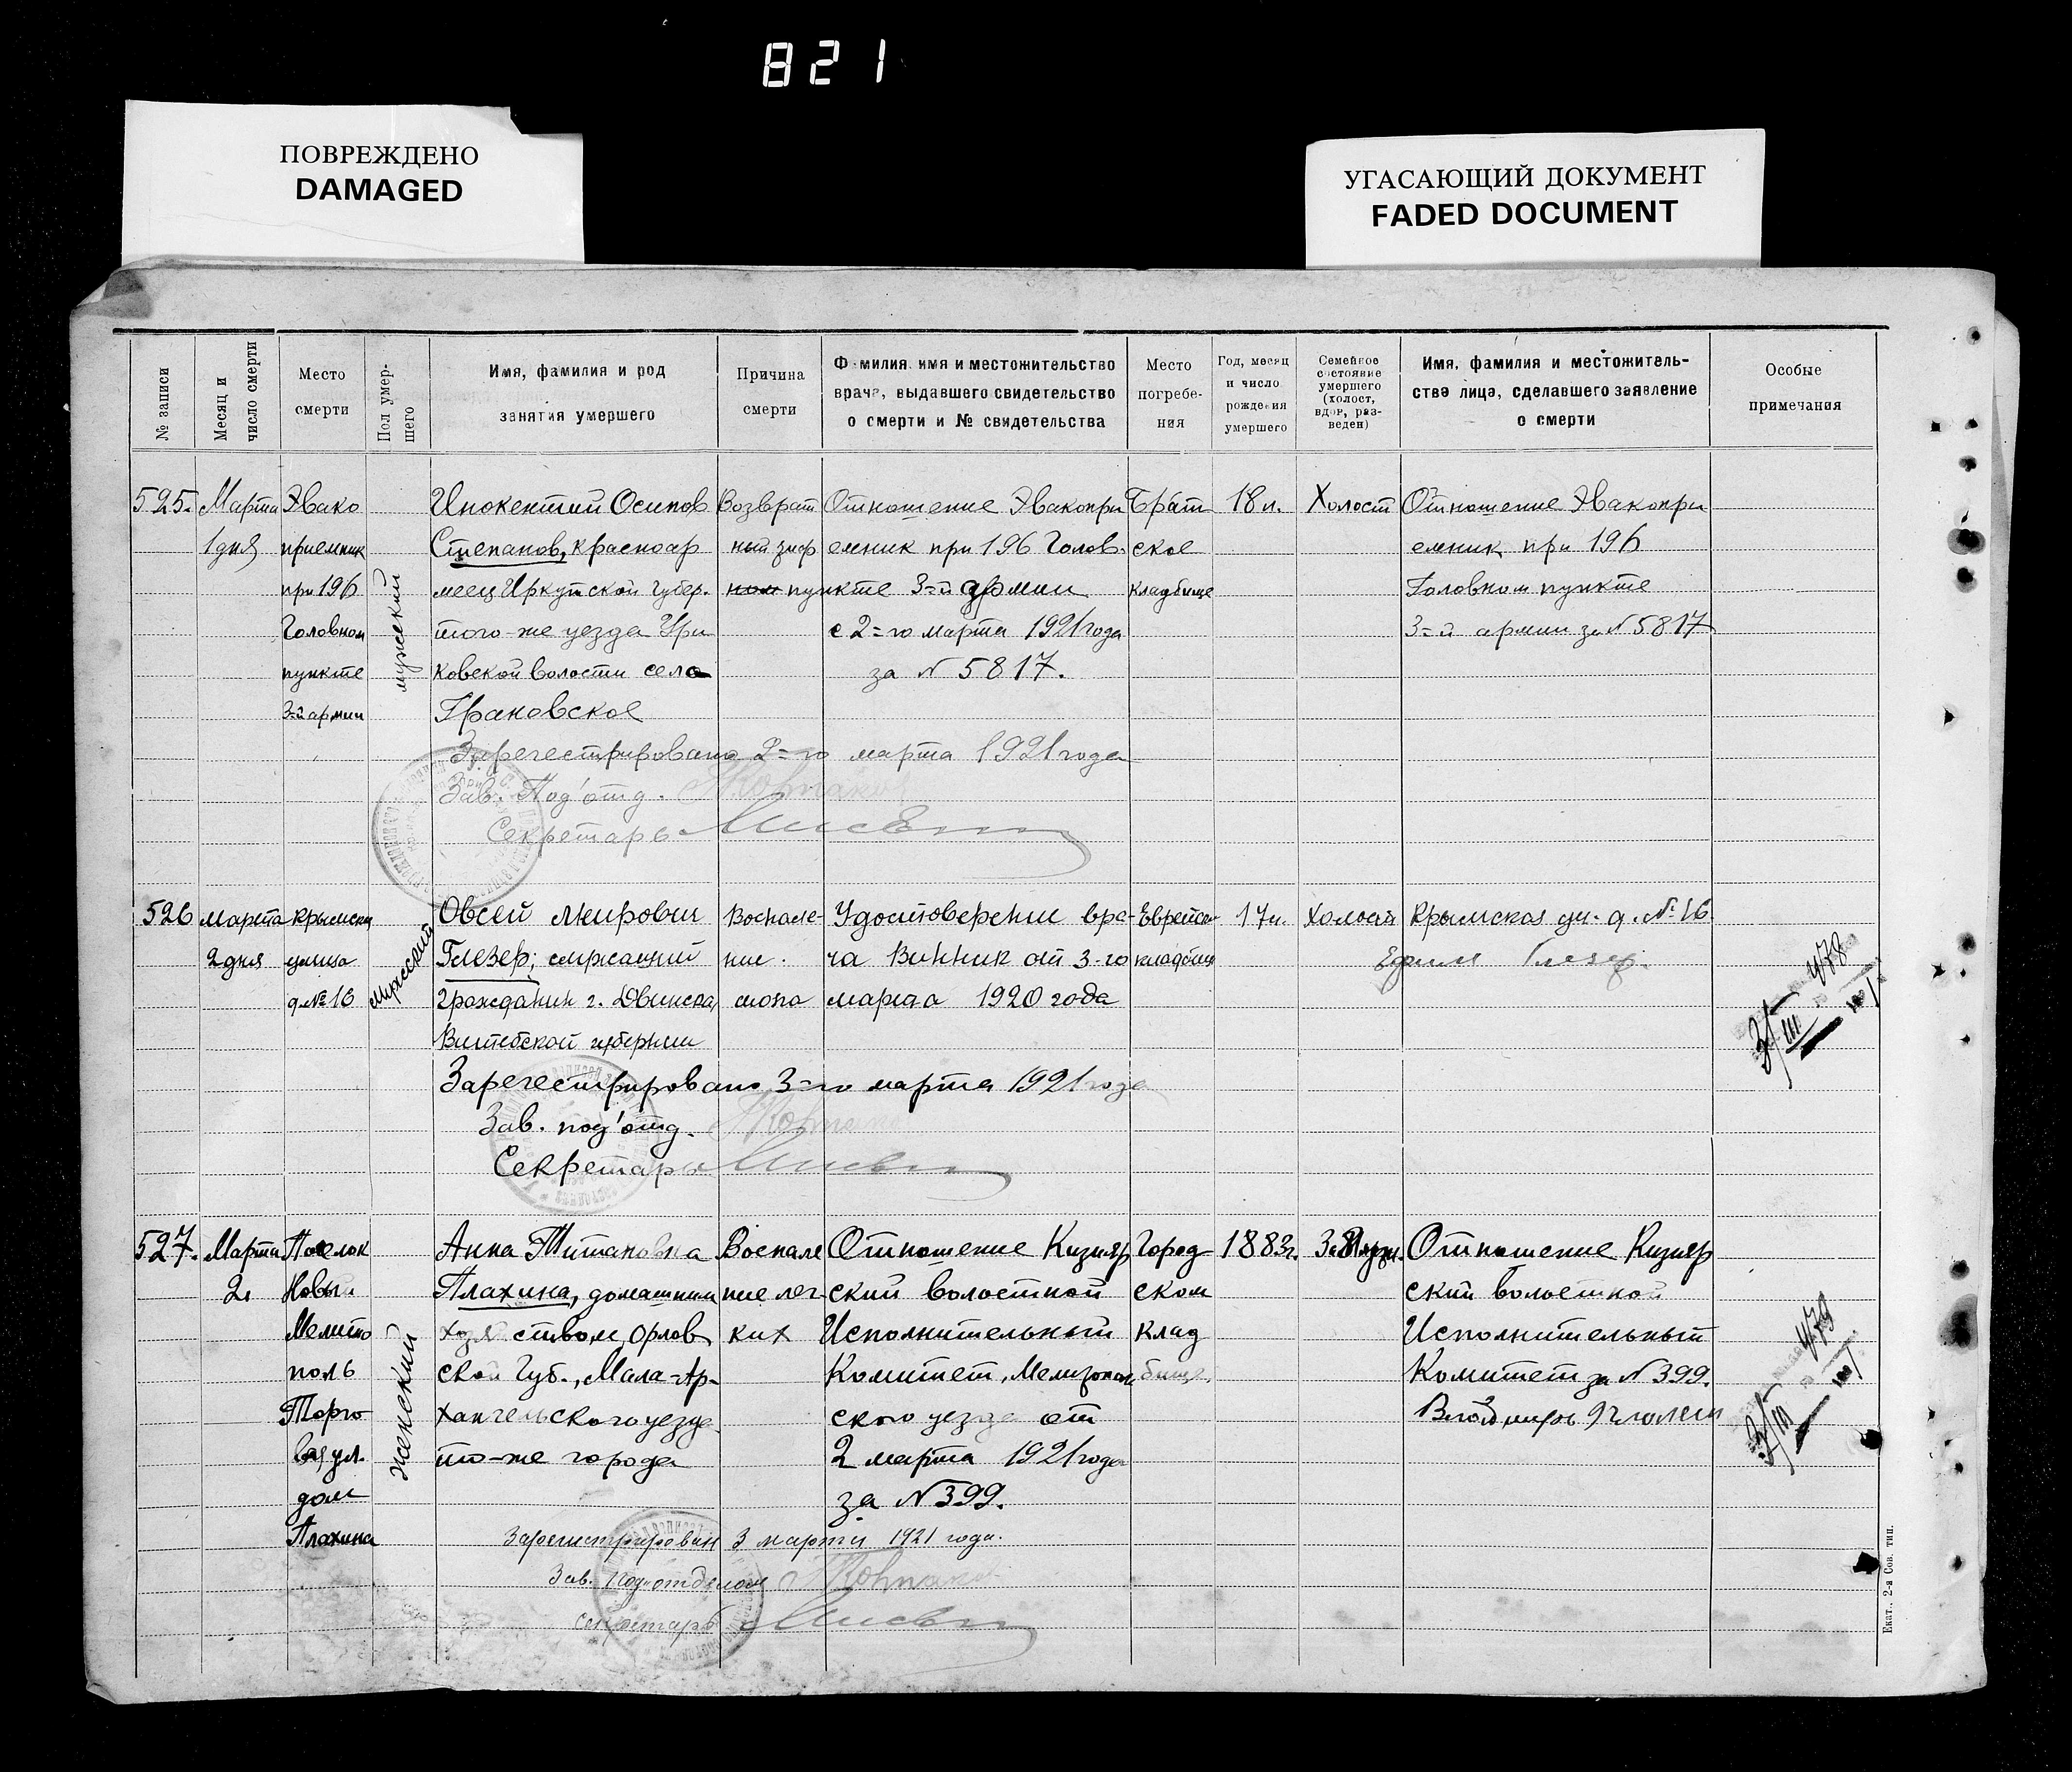 821
ПОВРЕЖДЕНО
DAMAGED
УГАСАЮЩИЙ ДОКУМЕНТ
FADED DOCUMENT
№ записи
Месяц и
число смерти
Место
смерти
Пол умер-
шего
Имя, фамилия и род
занятия умершего
Причина
смерти
Фамилия, имя и местожительство
врача, выдавшего свидетельство
о смерти и № свидетельства
Место
погребе-
ния
Год, месяц
и число
рождения
умершего
Семейное
состояние
умершего
(холост,
вдов, раз-
веден)
Имя, фамилия и местожитель-
ства лица, сделавшего заявление
о смерти
Особые
примечания
525.
Марта
1 дня
Эвако
приемник
при 196
Головном
пункте
3-й армии
мужской
Инокентий Осипов
Степанов, красноар
меец Иркутской губер.
того-же уезда Ури
ковской волости село
Грановское
Возврат
ный
Отношение Эвакопри
емник при 196 Голов.
ном пункте 3=й армии
с 2=го марта 1921 года
за N 5817.
Брат
ское
кладбище
18 л.
Холост
Отношение Эвакопри
емник при 196
Головном пункте
3=й армии за N 5817
Зарегестрировано 2=го марта 1921 года
Зав. Под'отд.
Секретарь
526
марта
2 дня
Крымская
улица
д. № 16
мужской
Овсей Мирович
Глезер; служащий
гражданин г. Двинска,
Витебской губернии
Воспале-
ние
Удостоверение вра-
ча Винник от 3-го
марта 1920 года
Еврейское
кладбище
17 л.
Холост
Крымская ул. д. № 16
Ефим Глезер.
3/III
478
Зарегестрировано 3=го марта 1921 года
Зав. под'отд.
Секретарь
527.
Марта
2
Поселок
Новый
Мелито
поль
Торго
вая ул.
дом
Плахина
женский
Анна Титановна
Плахина, домашним
хозяйством, Орлов
ской Губ., Мало-Ар-
хангельского уезда
то-же города
Воспале
ние лег-
ких
Отношение Кизияр
ский волостной
Исполнительный
Комитет, Мелитополь
ского уезда от
2 марта 1921 года
за N 399.
Город
ском
клад
бище.
1883 г.
Отношение Кизияр
ский волостной
Исполнительный
Комитет за N 399.
3/III
479
Зарегистрирован 3 марта 1921 года.
Зав. Под'отделом
секретарь
Екат., 2-я Сов. тип.